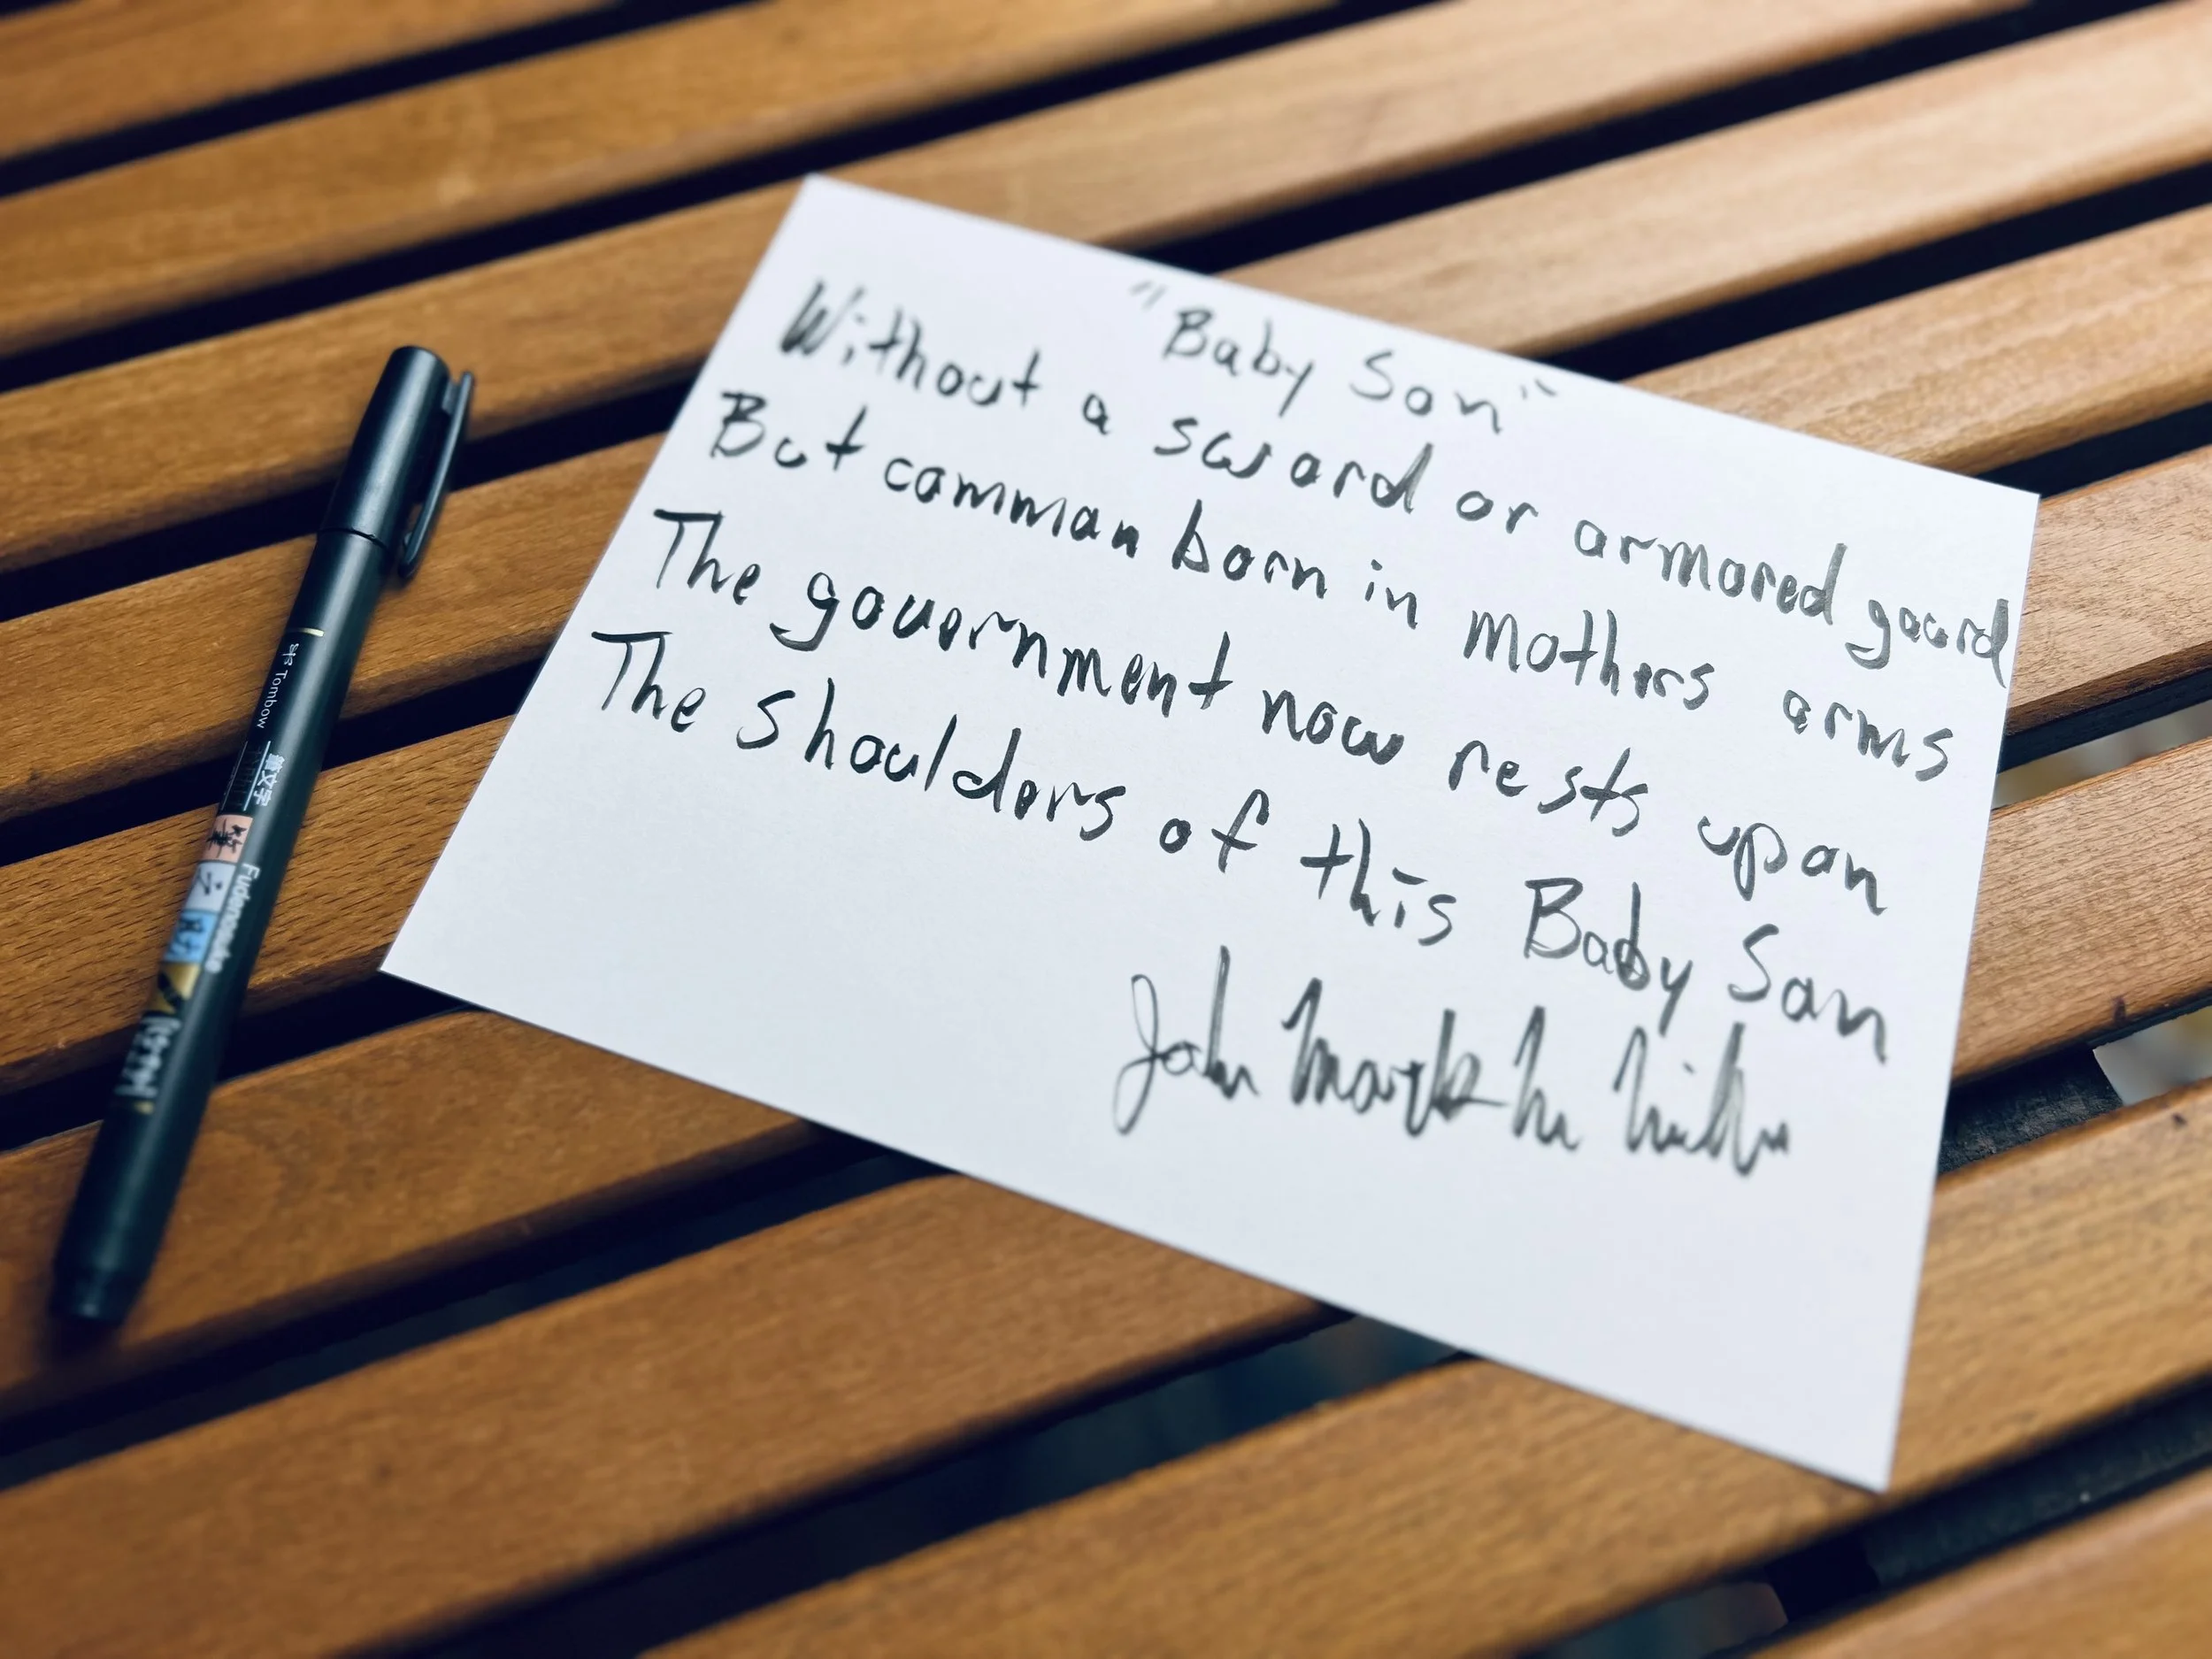 "Baby Son"
Without a sword or armored guard
But common born in mothers arms
The government now rests upon
The shoulders of this Baby Son
John Mark McMillan
Tombow
筆文字
筆之助
Fudenosuke